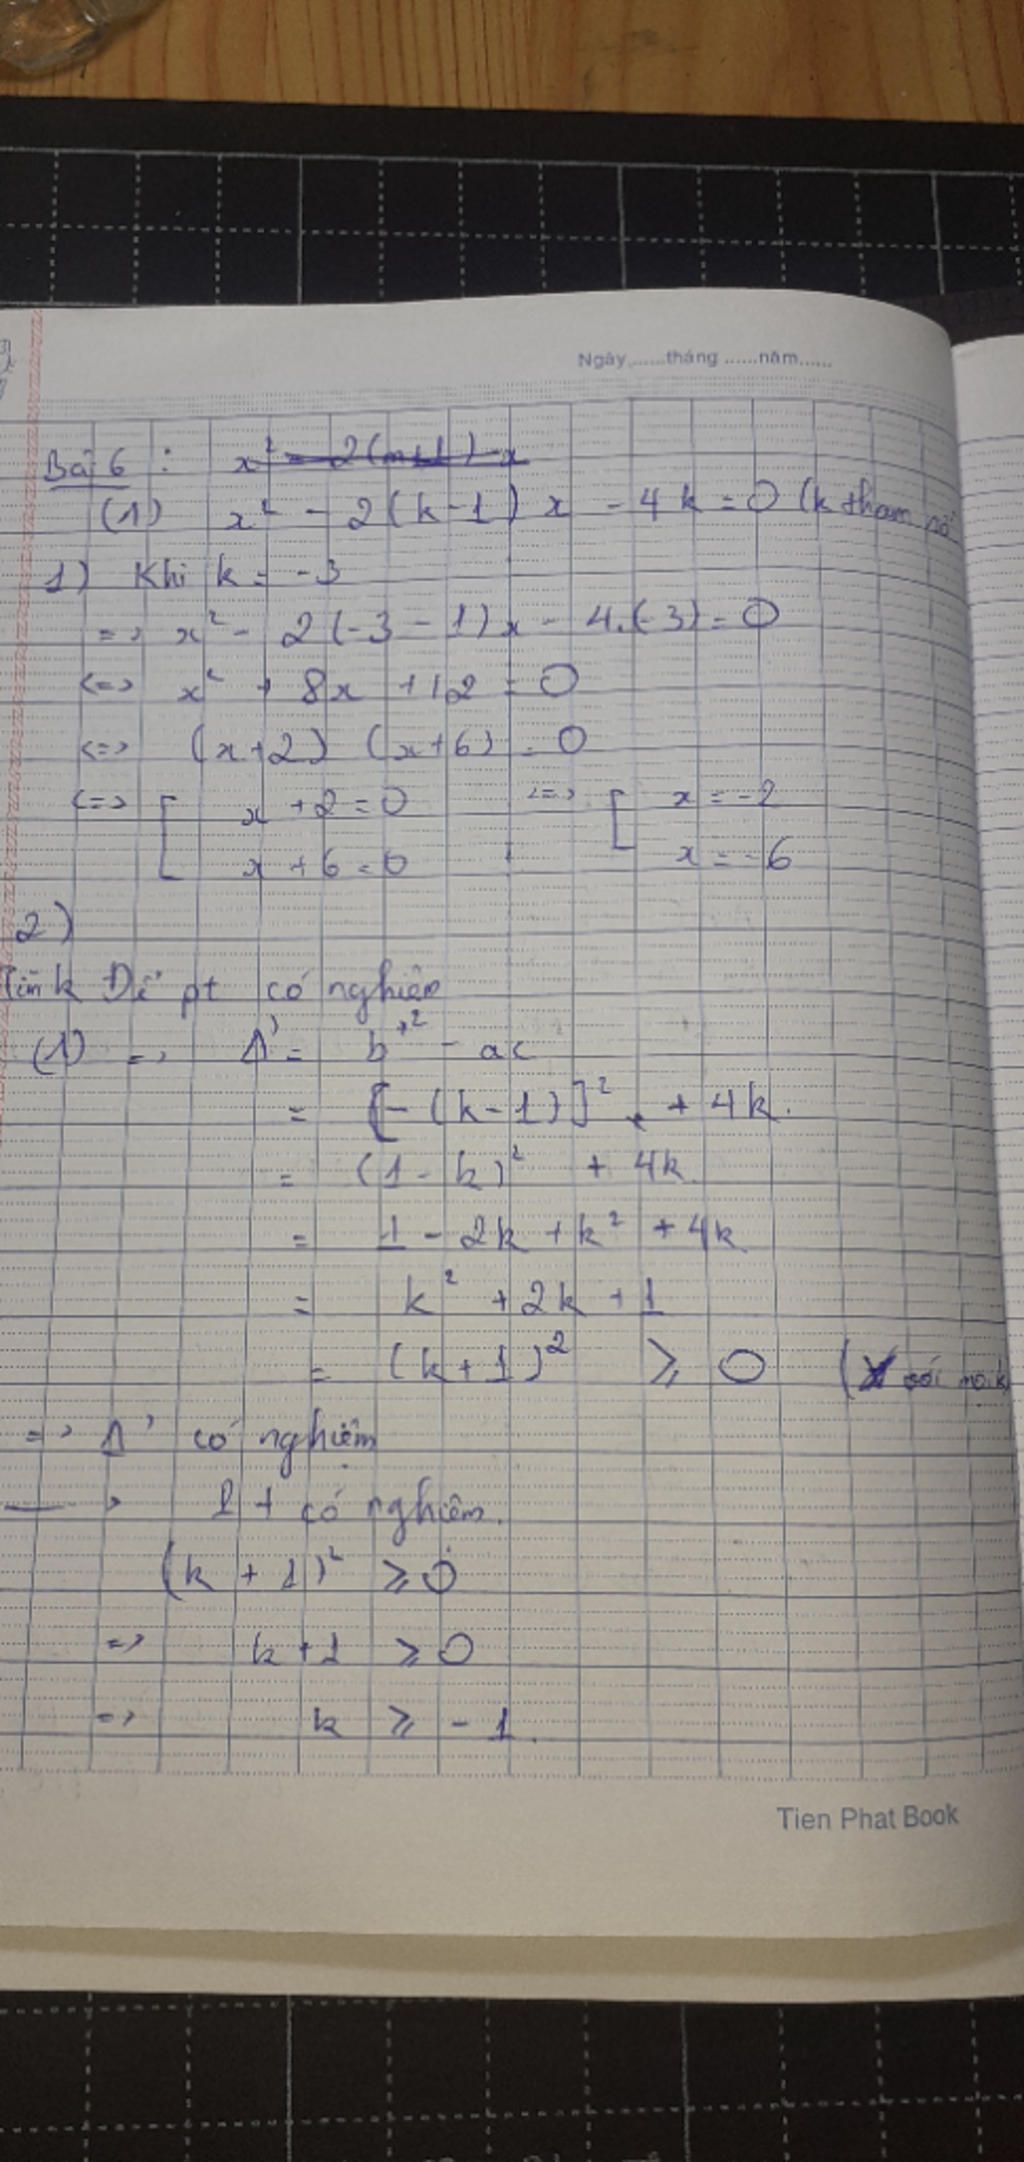 Ngày......tháng ......năm......
Bài 6 : x² - 2(m+1) x
(1) x² - 2(k-1) x - 4k = 0 (k tham số
1) Khi k = -3
=> x² - 2(-3 - 1)x - 4.(-3) = 0
<=> x² + 8x + 12 = 0
<=> (x+2) (x+6) = 0
<=> [ x + 2 = 0 <=> [ x = -2
x + 6 = 0 x = -6
2)
Tìm k Để pt có nghiệm
(1) => Δ' = b'² - ac
= [-(k-1)]² + 4k.
= (1 - k)² + 4k
= 1 - 2k + k² + 4k
= k² + 2k + 1
= (k+1)² ≥ 0 ( với mọi k
=> Δ' có nghiệm
—> Pt có nghiệm.
(k + 1)² ≥ 0
=> k + 1 ≥ 0
=> k ≥ -1.
Tien Phat Book